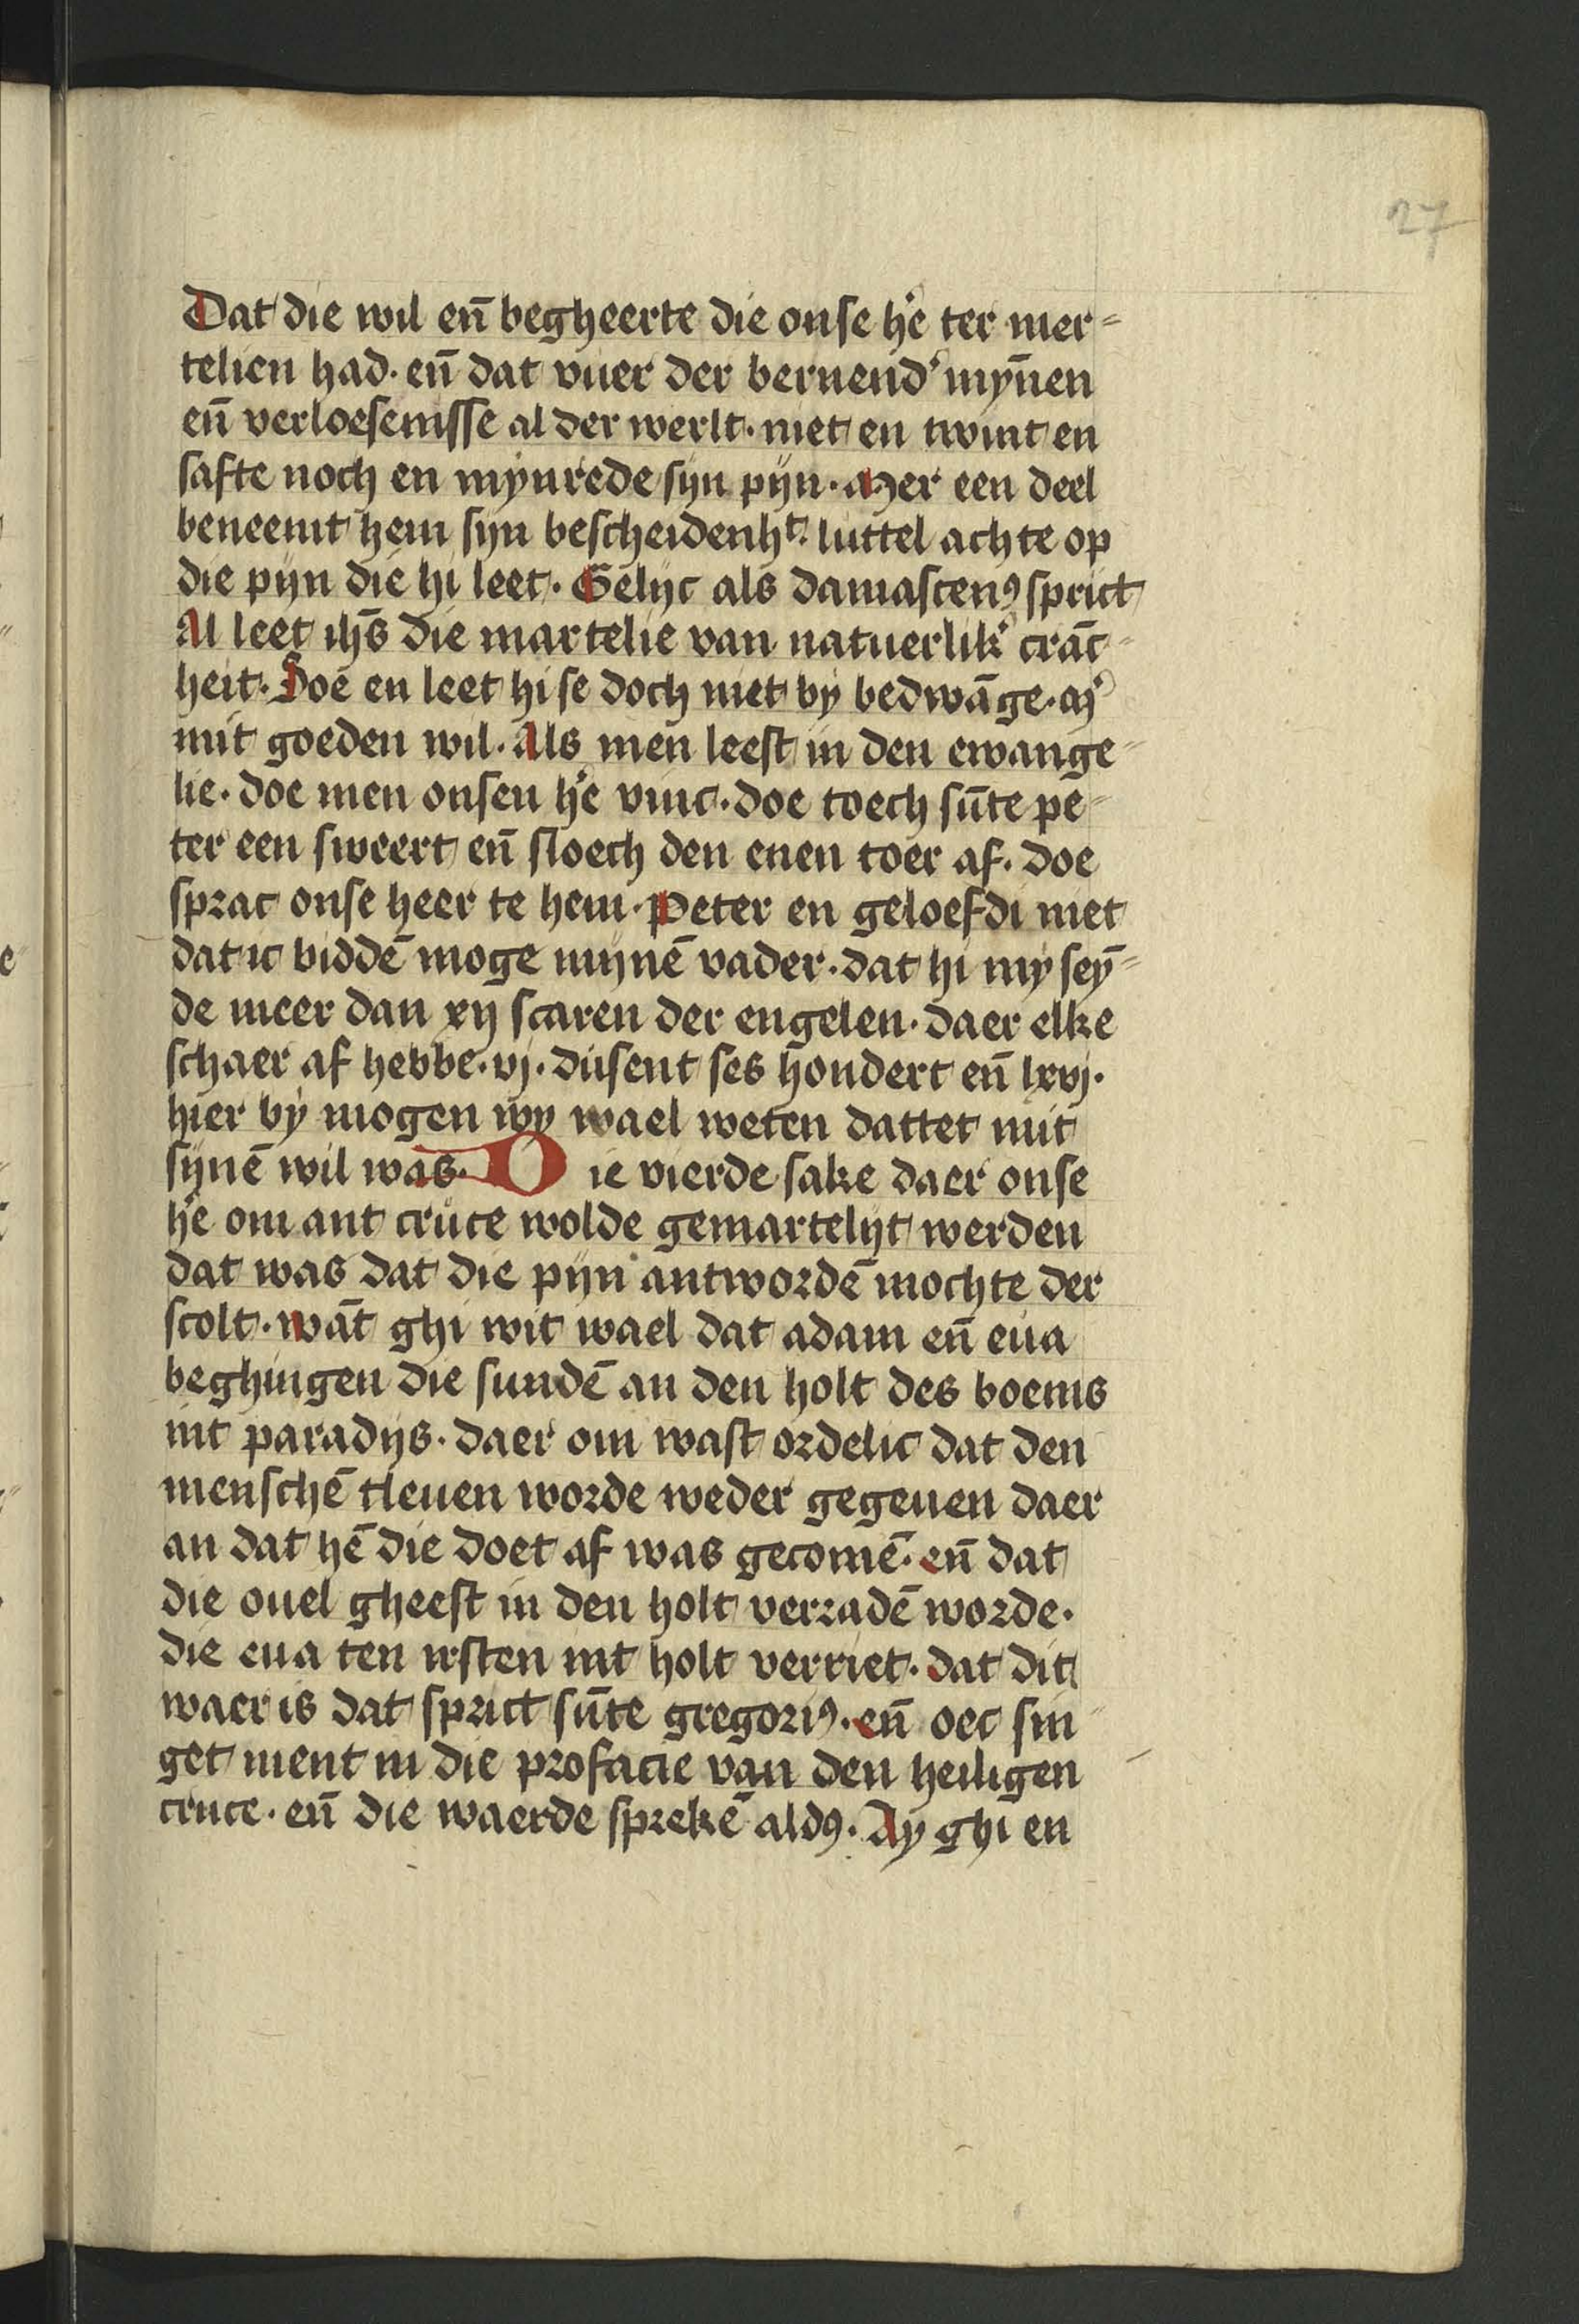 27
Dat die wil en̄ begheerte die onse he᷑ ter mer=
telien had. en̄ dat vuer der bernend᷑ myn̄en
en̄ verloesenisse al der werlt. niet en twint en
safte noch en mynrede syn pyn. Mer een deel
beneemt hem syn bescheidenhᵗ. luttel achte op
die pyn die hi leet. Gelijc als damascenꝰ sprict
Al leet ihs̄ die martelie van natuerlik᷑ crāc=
heit. Doe en leet hi se doch niet by bedwāge. m᷑
mit goeden wil. Als men leest in den ewange=
lie. doe men onsen he᷑ vinc. doe toech sūte pe=
ter een sweert en̄ sloech den enen toer af. doe
sprac onse heer te hem. Peter en geloefdi niet
dat ic biddē moge mijnē vader. dat hi my seȳ=
de meer dan xij scaren der engelen. daer elke
schaer af hebbe. vj. dusent ses hondert en̄ lxvj.
hier by mogen wy wael weten dattet mit
sijnē wil was. Die vierde sake daer onse
he᷑ om ant cruce wolde gemartelijt werden
dat was dat die pijn antwordē mochte der
scolt. wāt ghi wit wael dat adam en̄ eua
beghingen die sundē an den holt des boems
int paradijs. daer om wast ordelic dat den
menschē tleuen worde weder gegeuen daer
an dat hē die doet af was gecomē. en̄ dat
die ouel gheest in den holt verradē worde.
die eua ten irsten int holt verriet. dat dit
waer is dat sprict sūte gregoriꝰ. en̄ oec sin=
get ment in die profacie van den heiligen
cruce. en̄ die waerde sprekē aldꝰ. Ay ghi en